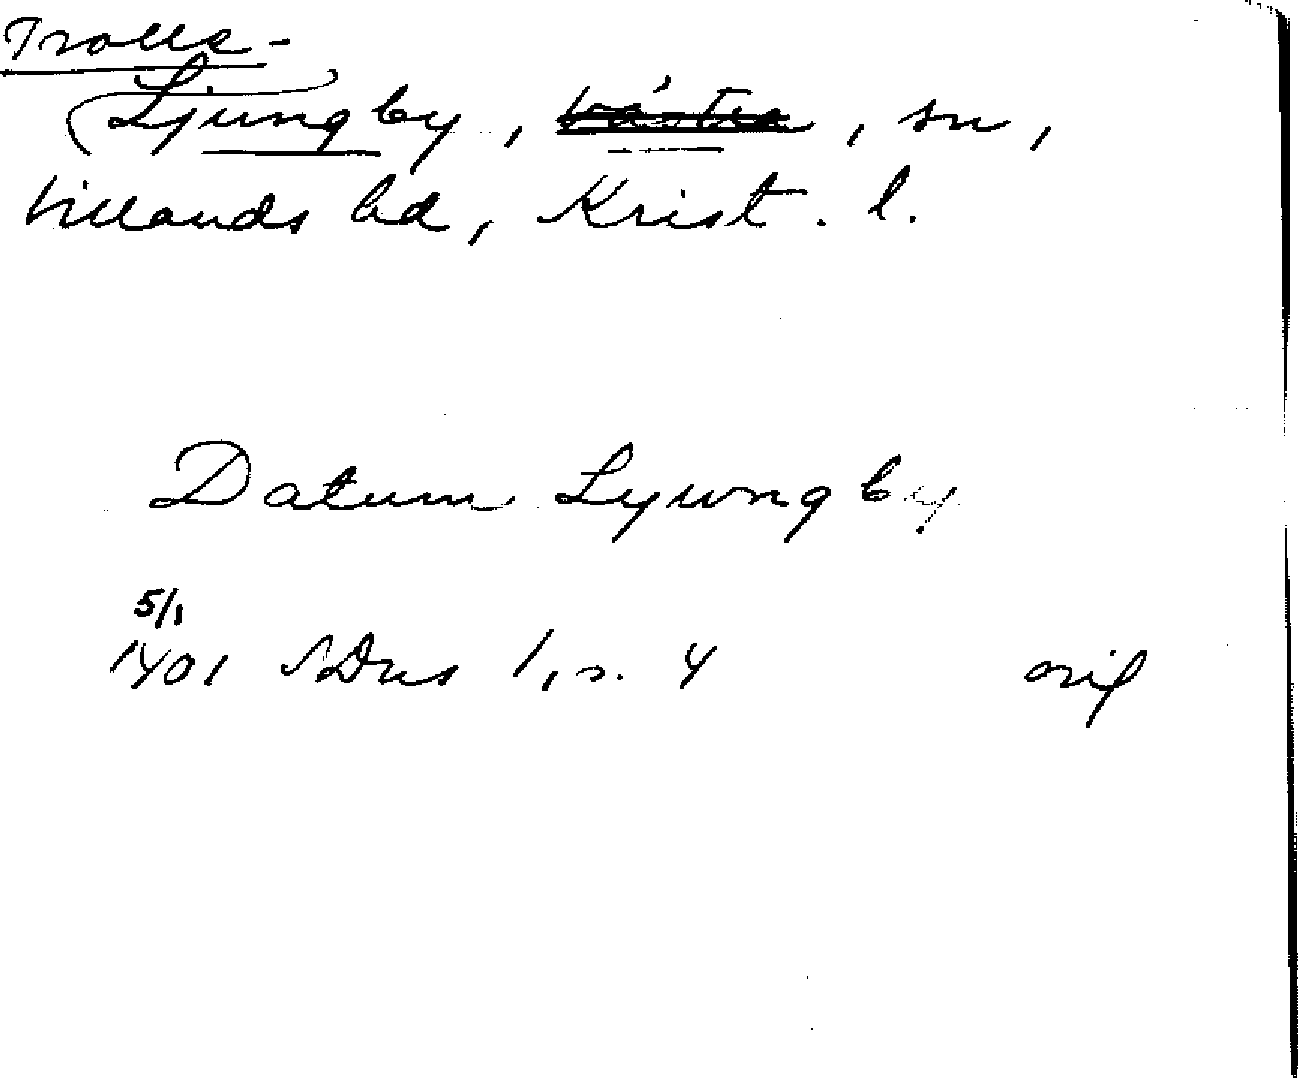 Trolle-
Ljungby, västra, sn,
Villands hd, Krist. l.
Datum Lyungby
5/1
1401 SDns 1, s. 4 orig